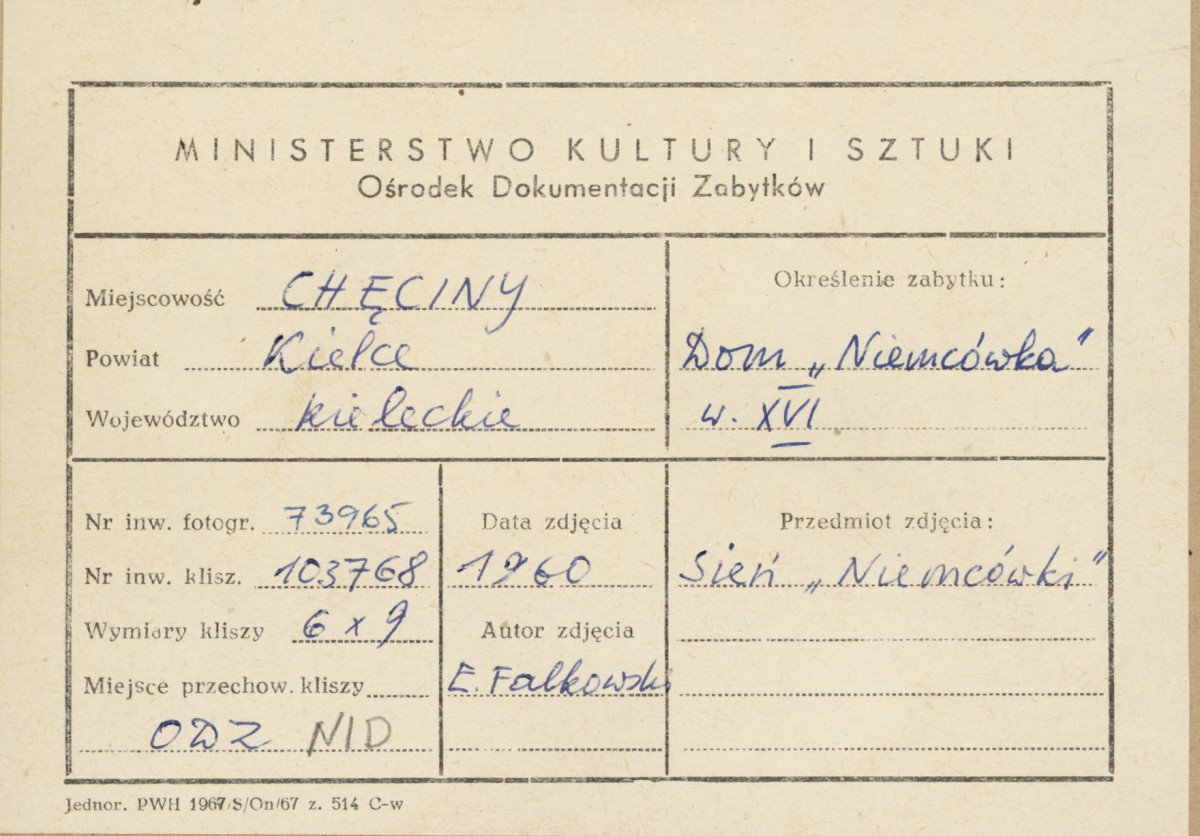 MINISTERSTWO KULTURY I SZTUKI
Ośrodek Dokumentacji Zabytków
Miejscowość CHĘCINY
Powiat Kielce
Województwo kieleckie
Określenie zabytku:
Dom „Niemcówka"
w. XVI
Nr inw. fotogr. 73965
Nr inw. klisz. 103768
Wymiary kliszy 6 x 9
Miejsce przechow. kliszy
ODZ NID
Data zdjęcia
1960
Autor zdjęcia
E. Falkowski
Przedmiot zdjęcia:
Sień „Niemcówki"
Jednor. PWH 1967/S/On/67 z. 514 C-w